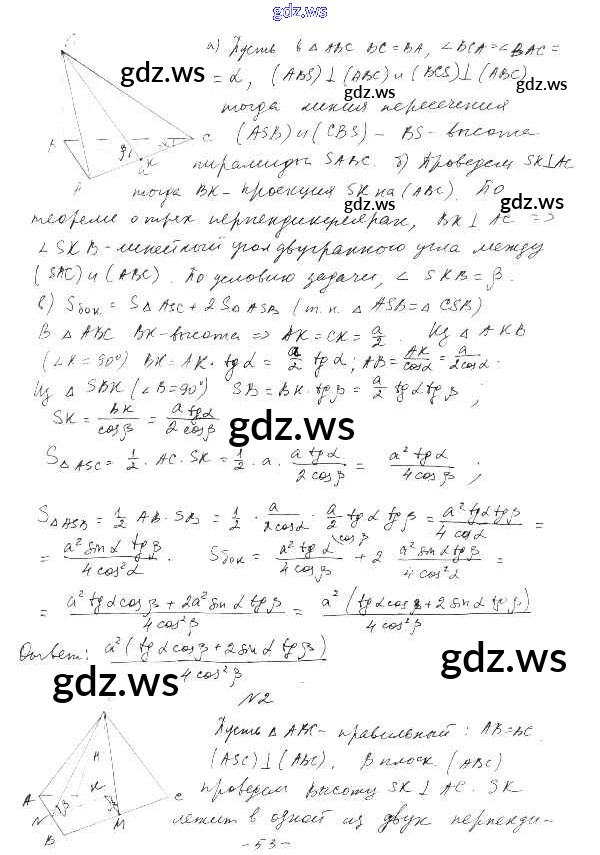 gdz.ws
а) Пусть в △ABC BC=BA, ∠BCA=∠BAC=
=α, (ABS)⊥(ABC) и (BCS)⊥(ABC)
тогда линия пересечения
(ASB) и (CBS) – BS – высота
пирамиды SABC. б) Проведем SK⊥AC
тогда BK – проекция SK на (ABC). По
теореме о трех перпендикулярах, BK⊥AC =>
∠SKB – линейный угол двугранного угла между
(SAC) и (ABC). По условию задачи, ∠SKB=β.
в) Sбок. = S△ASC + 2S△ASB (т.к. △ASB=△CSB)
В △ABC BK – высота => AK=CK= a/2. Из △AKB
(∠K=90°) BK=AK·tgα= a/2 tgα; AB= AK/cosα = a/2cosα.
Из △SBK (∠B=90°) SB=BK·tgβ= a/2 tgα tgβ;
SK = BK/cosβ = a tgα/2 cosβ
S△ASC = 1/2 · AC · SK = 1/2 · a · a tgα/2 cosβ = a² tgα/4 cosβ;
S△ASB = 1/2 AB · SB = 1/2 · a/2cosα · a/2 tgα tgβ = a² tgα tgβ/4 cosα =
= a² sinα tgβ/4 cos²α. Sбок = a² tgα/4 cosβ + 2 a² sinα tgβ/4 cos²α =
= a² tgα cosβ + 2a² sinα tgβ/4 cos²β = a² (tgα cosβ + 2 sinα tgβ)/4 cos²β
Ответ: a² (tgα cosβ + 2 sinα tgβ)/4 cos²β
N2
Пусть △ABC – правильный: AB=BC.
(ASC)⊥(ABC). В плоск. (ABC)
проведем высоту SK⊥AC. SK
лежит в одной из двух перпенди-
-53-